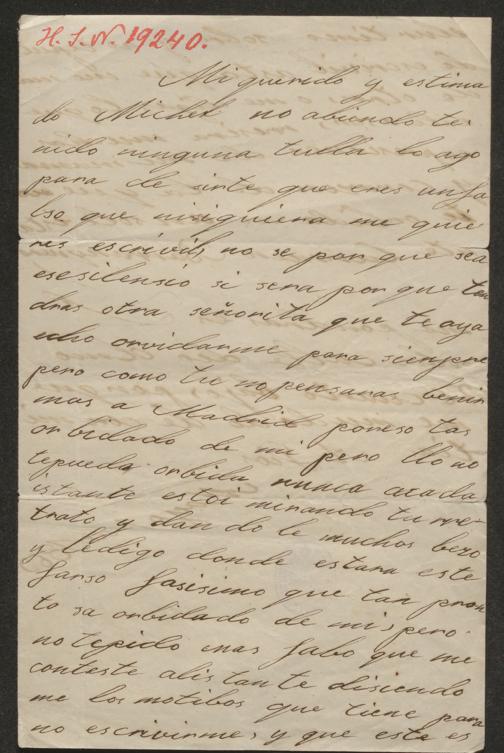 H. I. N. 19240.
Mi querido y estima
do Michel no abiendo te
nido ninguna tulla lo ago
para de sirte que eres un fa
lso que nisiquiera me quie
res escrivir, no se por que sea
esesilensio si sera por que ten
dras otra señorita que te aya
echo orvidarme para siempre
pero como tu no pensaras benir
mas a Madrid poreso tas
orbidado de mi pero llo no
tepueda orbida nunca acada
istante estoi mirando tu rre-
trato y dan do le muchos beso
y ledigo donde estara este
farso fasisimo que tan pron
to sa orbidado de mi, pero
no tepido mas fabo que me
conteste alis tante disiendo
me los motibos que tiene para
no escrivirme, y que este es